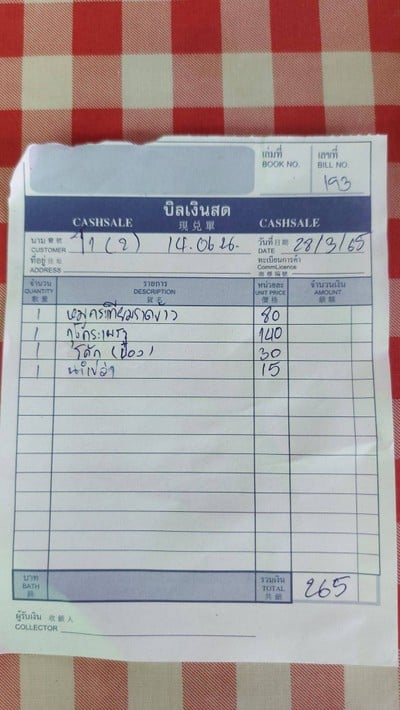 เล่มที่ เลขที่
BOOK NO. BILL NO.
193
บิลเงินสด
CASHSALE 現兑單 CASHSALE
นาม 寶號 1 (2) 14.06 น. วันที่ 日期 28/3/65
CUSTOMER DATE
ที่อยู่ 住址 ทะเบียนการค้า
ADDRESS CommLicence
商標編號
จำนวน รายการ หน่วยละ จำนวนเงิน
QUANTITY DESCRIPTION UNIT PRICE AMOUNT
數量 貨名 價格 銀額
1 หมูกระเทียมราดข้าว 80
1 กุ้งกระเพรา 140
1 โค้ก (ป๋อง) 30
1 น้ำเปล่า 15
บาท รวมเงิน 265
BATH TOTAL
銖 共銀
ผู้รับเงิน 收銀人
COLLECTOR